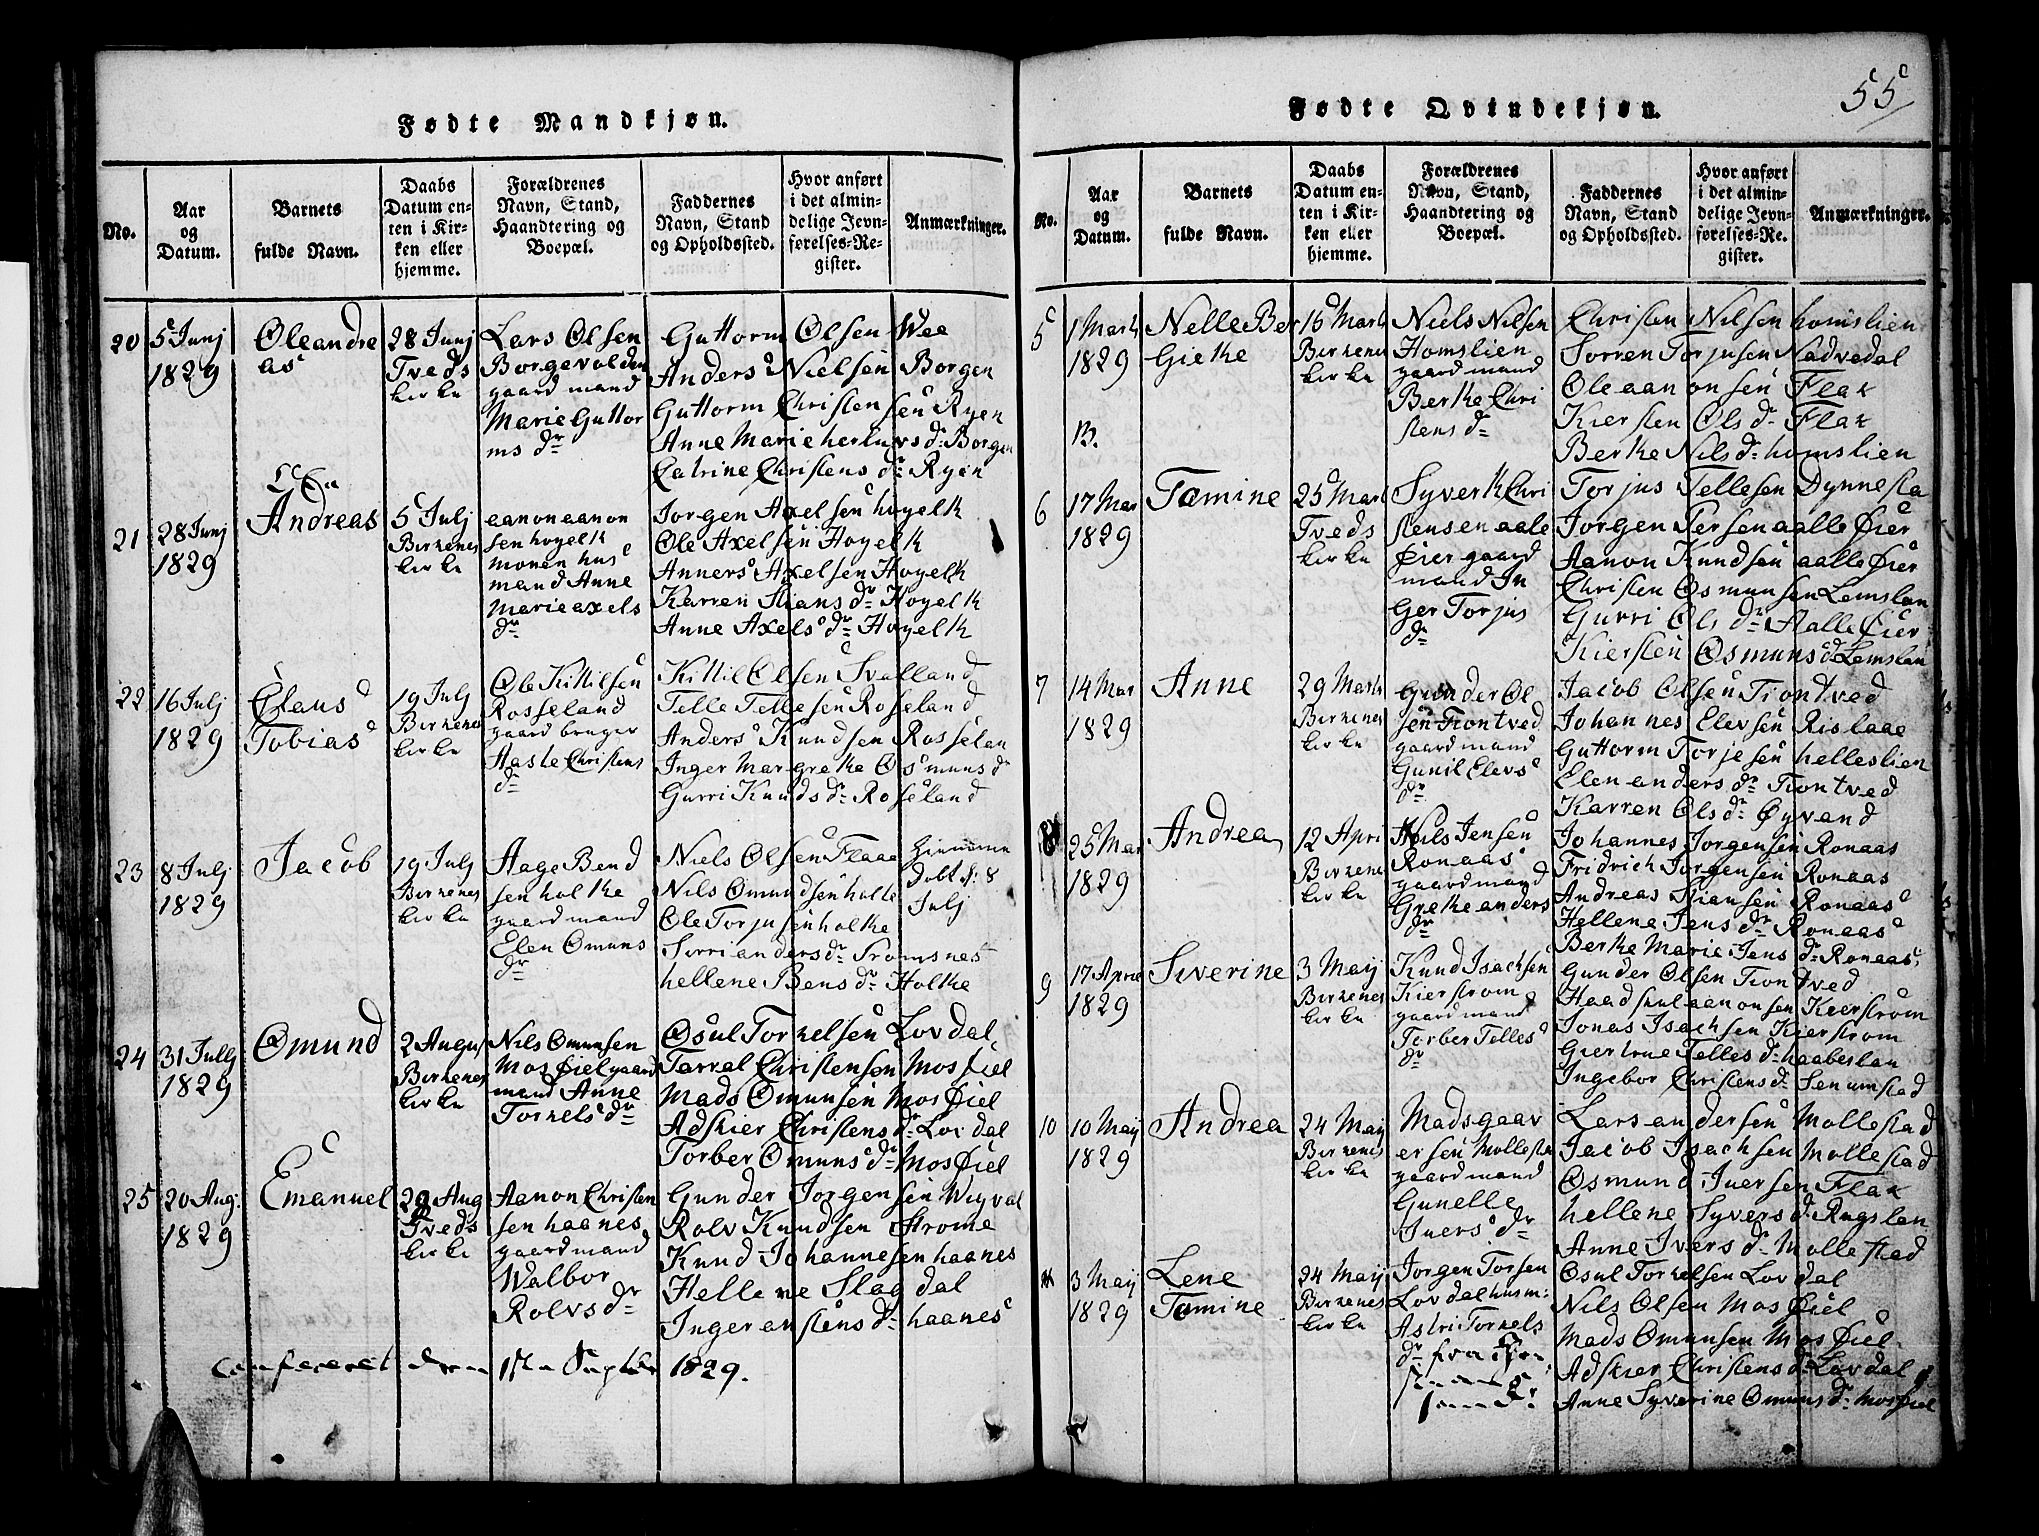 55
Fødte Mandkjøn.
No.
Aar
og
Datum.
Barnets
fulde Navn.
Daabs
Datum en-
ten i Kir-
ken eller
hjemme.
Forældrenes
Navn, Stand,
Haandtering og
Boepæl.
Faddernes
Navn, Stand
og Opholdssted.
Hvor anført
i det almin-
delige Jevn-
førelses-Re-
gister.
Anmærkninger.
20
5 Junj
1829
Øleandre
as
28 Junj
Tveds
kirke
Lars Olsen
Borgevolden
gaard mand
Marie Guttor
ms dr
Guttorm Olsen Wee
Anders Nielsen Borgen
Guttorm Christensen Ryen
Anne Marie herlufs dr Borgen
Catrine Christens dr Ryen
21
28 Junj
1829
Andreas
5 Julj
Birkenes
kirke
aanon aanon
sen hoyelk
monen hus
mand Anne
Marie axels
dr
Jorgen Axelsen hoyelk
Ole Axelsen Hoyelk
Anners Axelsen Hoyelk
Karren Stians dr Hoyelk
Anne Axels dr Hoyelk
22
16 Julj
1829
Ølaus
Tobias
19 Julj
Birkenes
kirke
Ole Kittilsen
Rosseland
gaard bruger
Aaste Christens
dr
Kittil Olsen Svalland
Telle Tellesen Roseland
Anders Knudsen Rosselan
Inger Margrethe Osmuns dr
Gurri Knuds dr Roseland
23
8 Julj
1829
Jacob
19 Julj
Birkenes
kirke
Aage Bend
sen holte
gaard mand
Elen Omuns
dr
Niels Olsen Flaae
Nils Omundsen holte
Ole Torjusen holke
Sirri anders dr Tromsnes
hellene Bens dr Holke
hiemme
dobt d: 8
Julj
24
31 Julj
1829
Omund
2 Augus
Birkenes
kirke
Nils Omunsen
Mosfiel gaard
mand Anne
Torkels dr
Osul Torkelsen Lovdal
Tarral Christensen Mosfiel
Mads Omunsen Mosfiel
Adskier Christens dr Lovdal
Torber Omuns dr Mosfiel
25
20 Aug:
1829
Emanuel
29 Aug
Tveds
kirke
Aanon Christen
sen haanes
gaard mand
Walbor
Rolvs dr
Gunder Jorgensen Wigval
Rolv Knudsen Strome
Knud Johannesen haanes
Hellene Slagdal
Inger anstens dr haanes
confereret den 1ste September 1829.
Fødte Qvindekjøn.
No.
Aar
og
Datum.
Barnets
fulde Navn.
Daabs
Datum en-
ten i Kir-
ken eller
hjemme.
Forældrenes
Navn, Stand,
Haandtering og
Boepæl.
Faddernes
Navn, Stand
og Opholdssted.
Hvor anført
i det almin-
delige Jevn-
førelses-Re-
gister.
Anmærkninger.
5
1 Marts
1829
B.
Nelle Ber
Gieke
15 Marts
Birkenes
kirke
Niels Nilsen
Homslien
gaard mand
Berthe Chri
stens dr
Christen Nilsen homslien
Sorren Torjusen Nadvedal
Ole aanonsen Flak
Kiersten Ols dr Flak
Berthe Nils dr homslien
6
17 Mar
1829
Tomine
25 Marts
Tveds
kirke
Syverk Chri
stensen aale
Øier gaard
mand In
Ger Torjus
dr
Torjus Tellesen Dynnesta
Jorgen Persen aalle Øier
Aanon Knudsen aalle Øier
Christen Osmunsen Lemslan
Gurri Ols dr Aalle Øier
Kiersten Osmuns dr Lemslan
7
14 Mar
1829
Anne
29 Marts
Birkenes
kirke
Gunder Ol
sen Tiontved
gaard mand
Gunil Elevs
dr
Jacob Olsen Tiontved
Johannes Elevsen Rislaae
Guttorm Torjesen helleslien
Elen anders dr Tiontved
Karren Ols dr Øyvand
8
25 Mar
1829
Andrea
12 Apri
Birkenes
kirke
Nils Jensen
Ronaas
gaard mand
Grethe anders
dr
Johannes Jorgensen Ronaas
Fridrich Jorgensen Ronaas
Andreas Stiansen Ronaas
Hellene Jens dr Ronaas
Berthe Marie Jens dr Ronaas
9
17 Aprie
1829
Siverine
3 Maij
Birkenes
kirke
Knud Isachsen
Kierstrom
gaard mand
Torber Telles
dr
Gunder Olsen Tiontved
Haadskul aanonsen Kierstrom
Jonas Isachsen Kierstrom
Giertrue Telles dr haabeslan
Ingebor Christens dr Senumstad
10
10 Maij
1829
Andrea
24 Maij
Birkenes
kirke
Mads gaav
ersen Mollesta
gaard mand
Gunelle
Juers dr
Lars andersen Mollestad
Jacob Isachsen Mollestad
Osmund Juersen Flak
hellene Syvers dr Rugslan
Anne Ivers dr Mollestad
3 Maij
1829
Lene
Tomine
24 Maij
Birkenes
kirke
Jorgen Torsen
Lovdal husm:
Astri Torkels
dr fra
Osul Torkelsen Lovdal
Nils Olsen Mosfiel
Mads Omunsen Mosfiel
Adskier Christens dr Lovdal
Anne Syverine Omuns dr Mosfiel